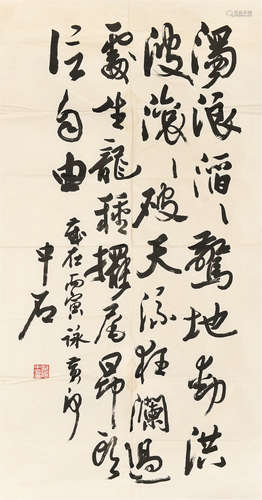 濁浪滔〻驚地動洪
波滾〻破天流狂瀾過
處生龍種擺尾昂頭
信自由 歲在丙寅詠黃河
中石